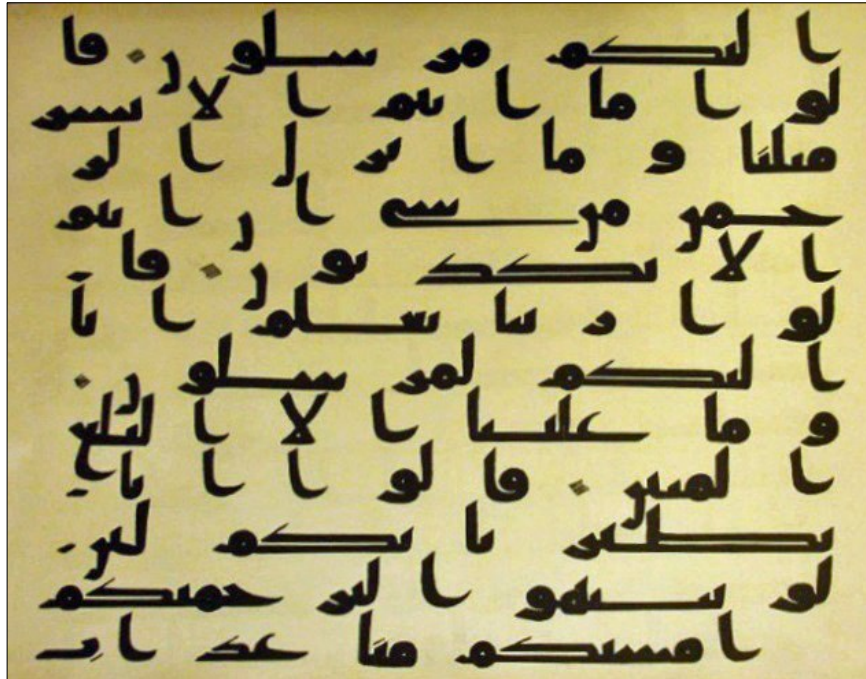 ا اليكم مرسلون قا
لوا ما انتم الا بشر
مثلنا وما انزل الر
حمن من شى ان انتم
الا تكذبون قا
لوا ربنا يعلم انا
اليكم لمرسلون
وما علينا الا البلغ
المبين قالوا انا
تطيرنا بكم لئن
لم تنتهوا لنرجمنكم
وليمسنكم منا عذاب